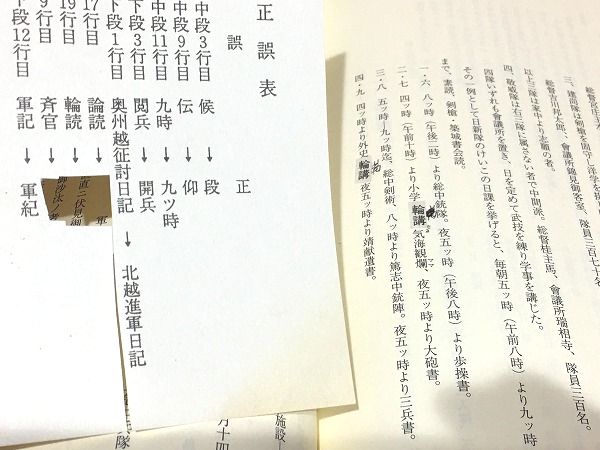 総督宮庄主
三、建尚隊は剣槍を固守し洋学を
総督吉川邦太郎、會議所錦見御客室、隊員三百七十名
以上三隊は家中より志願の者。
四、敬威隊は右三隊に属さない者で中間派、総督桂主馬、會議所瑞相寺、隊員三百名。
四隊いずれも會議所を置き、日を定めて武技を練り学事を講じた。
その一例として日新隊のけいこ日課を挙げると、毎朝五ッ時（午前八時）より九ッ時
まで、素読、剣槍・築城書会読。
一・六、八ッ時（午後二時）より総中銃隊。夜五ッ時（午後八時）より歩操書。
二・七、四ッ時（午前十時）より小学輪講、気海観瀾、夜五ッ時より大砲書。
三・八、五ッ時―九ッ時迄、総中剣術、八ッ時より篤志中銃陣。夜五ッ時より三兵書。
四・九、四ッ時より外史輪講、夜五ッ時より靖献遺書。
正誤表
誤　正
中段3行目　候→段
中段9行目　伝→仰
中段11行目　九時→九ツ時
下段3行目　閲兵→開兵
下段1行目　奥州越征討日記→北越進軍日記
17行目　論読
19行目　輪読
9行目　斉官
下段12行目　軍記→軍紀
直ニ伏見御
御沙汰
軍
兵隊
施設―
月十四